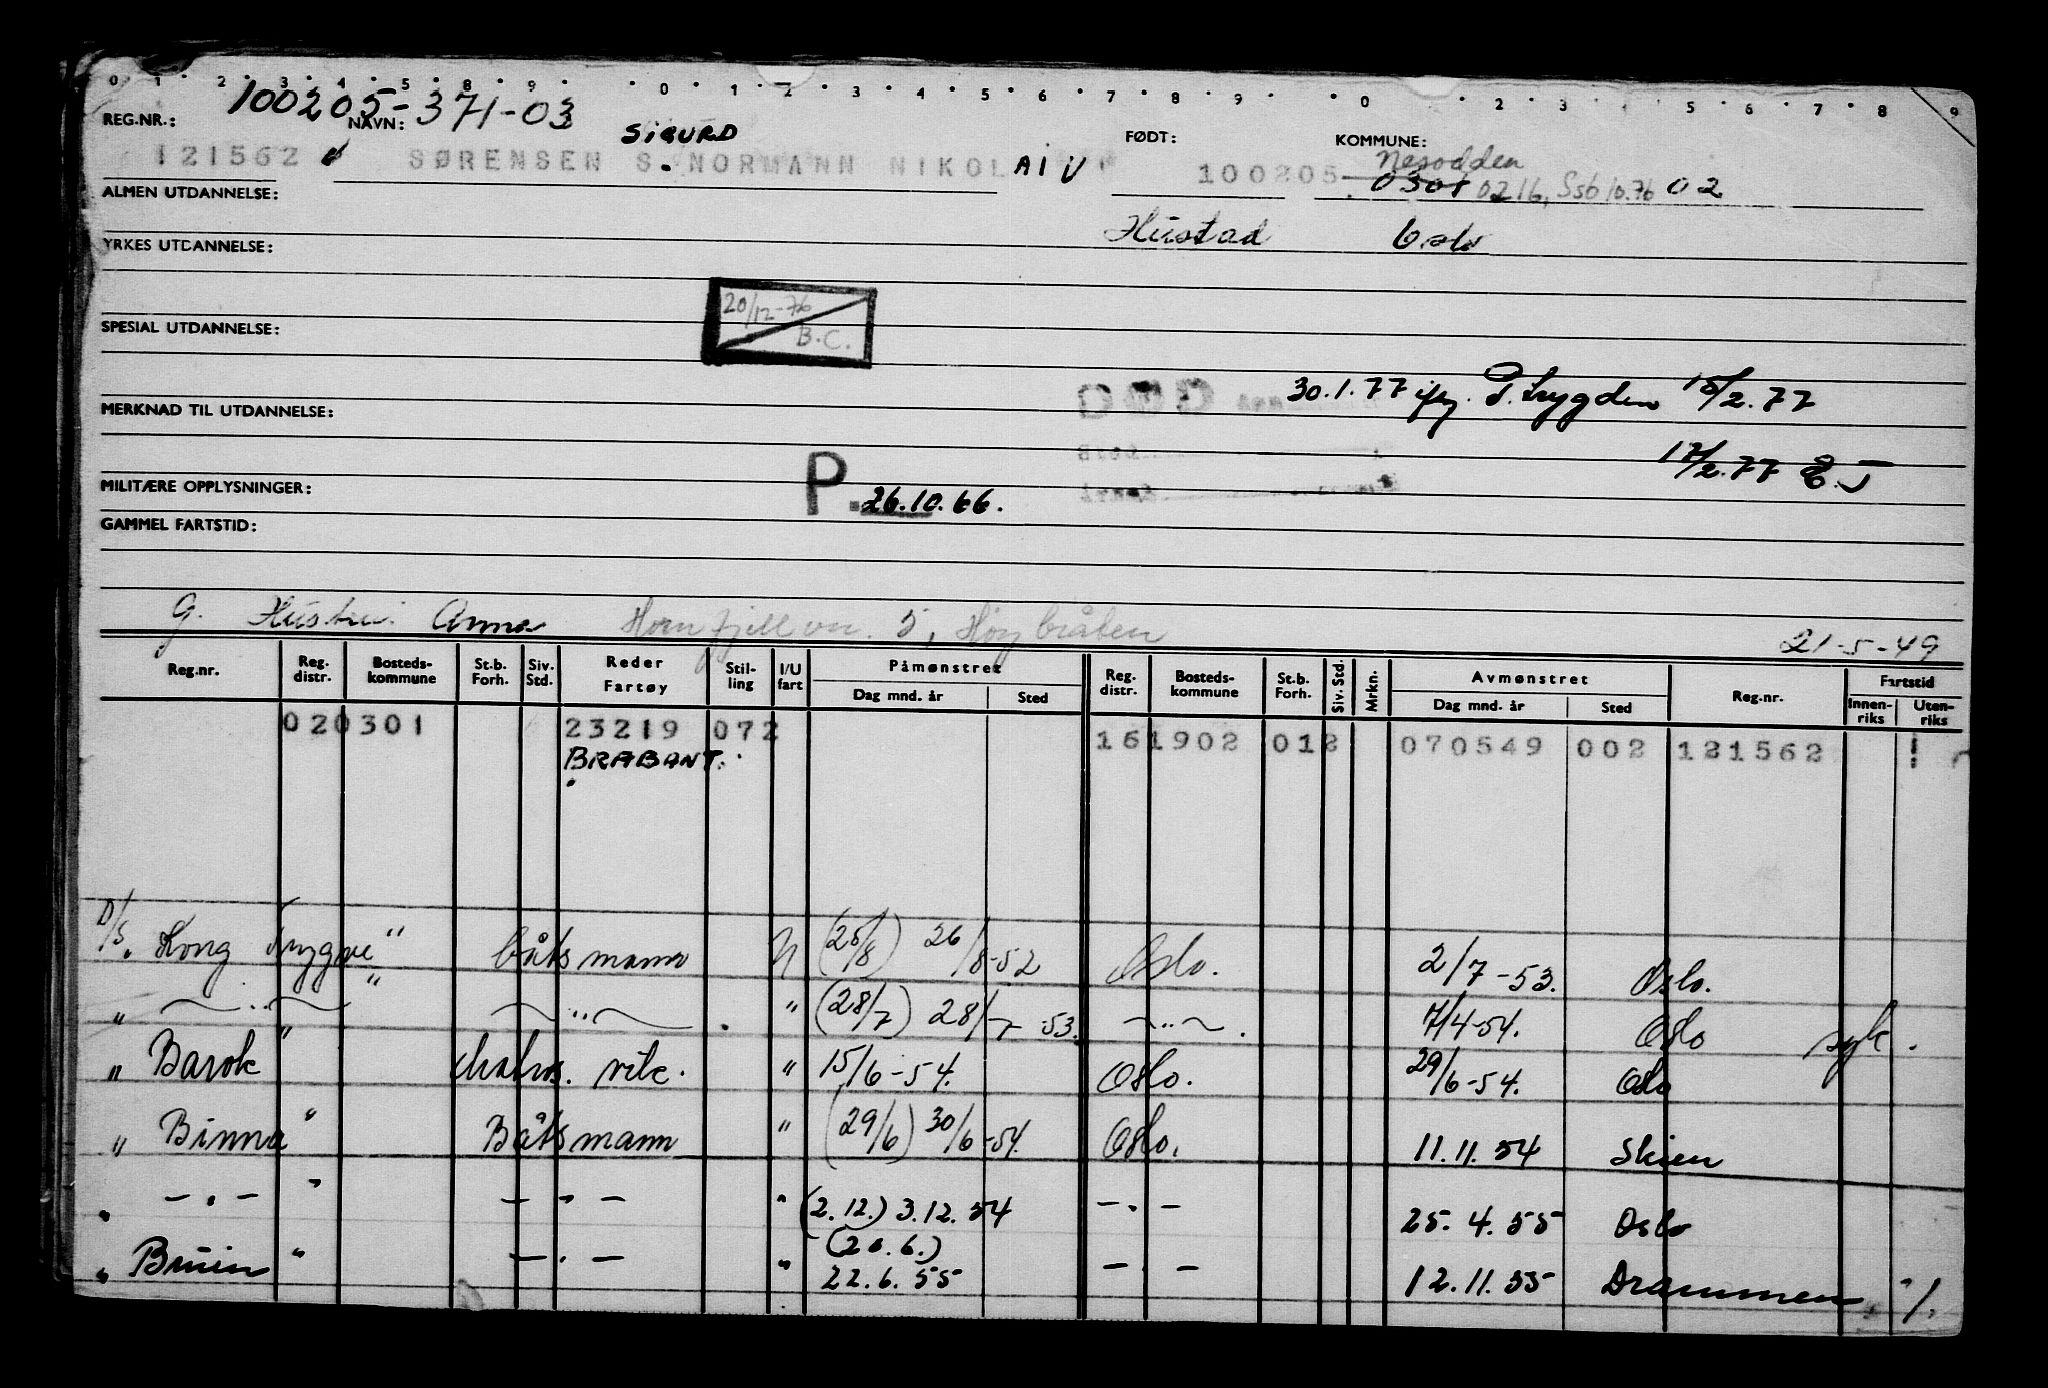 0 1 2 3 4 5 6 8 9 0 1 2 3 4 5 6 7 8 9 0 2 3 4 5 6 7 8 9
100205-371-03
REG.NR.: NAVN: SIGURD FØDT: KOMMUNE:
121562 SØRENSEN S NORMANN NIKOL AI 100205 Nesodden
0301 0216, Ssb 10.76 02
ALMEN UTDANNELSE:
Hustad Oslo
YRKES UTDANNELSE:
20/12-76
B.C.
SPESIAL UTDANNELSE:
30.1.77 P.trygden 15/2.77
MERKNAD TIL UTDANNELSE:
17/2.77 E.J
MILITÆRE OPPLYSNINGER: P. 26.10.66.
GAMMEL FARTSTID:
G. Hustru: Anna Hornfjellvn. 5, Høybråten 21-5-49
Reg.nr. Reg. distr. Bosteds-kommune St.b. Forh. Siv. Std. Reder Fartøy Stil-ling I/U fart Påmønstret Dag mnd. år Sted Reg. distr. Bosteds-kommune St.b. Forh. Siv. Std. Mrkn. Avmønstret Dag mnd. år Sted Reg.nr. Fartstid Innen-riks Uten-riks
020301 23219 072 161902 012 070549 002 121562
BRABANT.
D/S. Kong Trygve " båtsmann N (25/8) 26/8-52 Oslo. 2/7-53. Oslo.
" — " — " — " — . " (28/7) 28/7 53. — " — . 7/4-54. Oslo syk.
" Barok " Matros. vik. " 15/6-54. Oslo. 29/6-54. Oslo
" Binna " Båtsmann " (29/6) 30/6-54. Oslo. 11.11.54 Skien
" — " — " — " — " (2.12.) 3.12.54 — " — 25.4.55 Oslo
(20.6.)
" Bruin " — " — " 22.6.55 — " — 12.11.55 Drammen